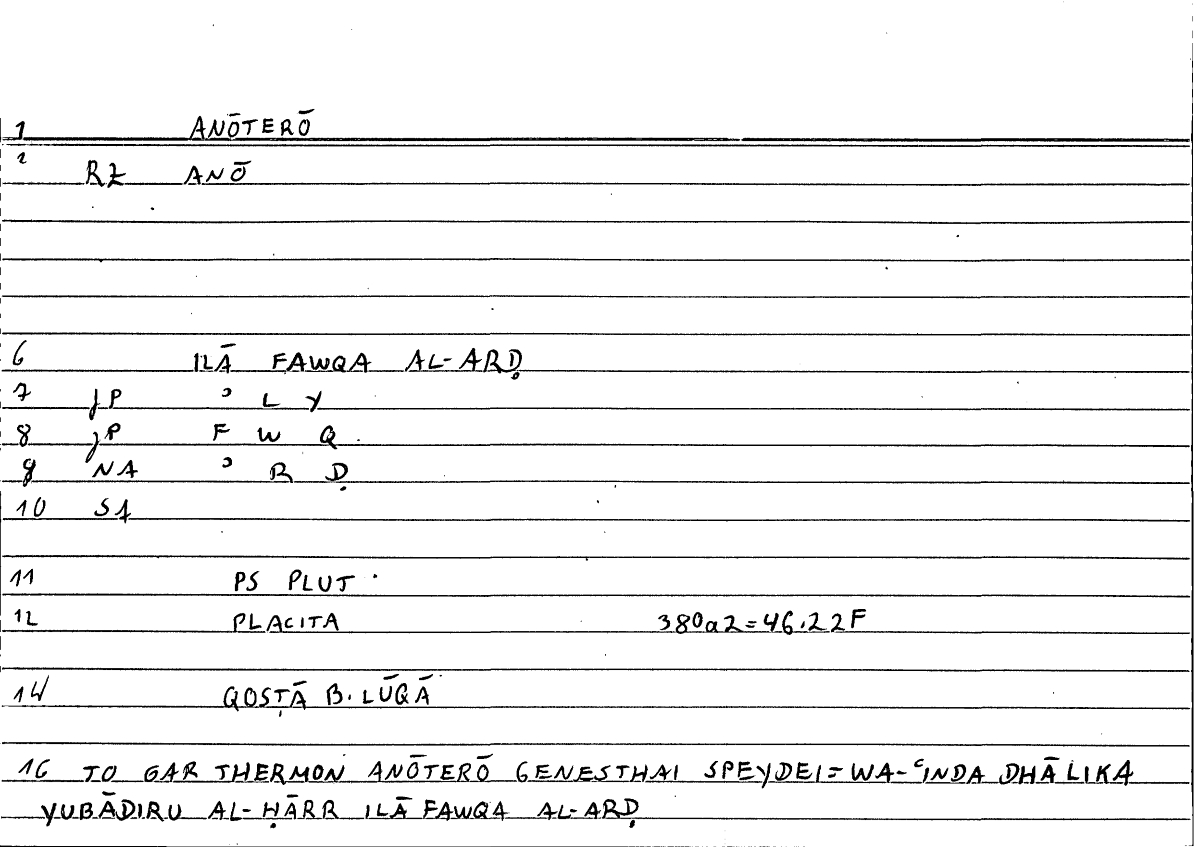 1 ANŌTERŌ
2 RZ ANŌ
6 ILĀ FAWQA AL-ARḌ
7 JP ʾ L Y
8 JP F W Q
9 NA ʾ R Ḍ
10 SA
11 PS PLUT.
12 PLACITA 380a2=46.22F
14 QOSṬĀ B. LŪQĀ
16 TO GAR THERMON ANŌTERŌ GENESTHAI SPEYDEI = WA-ʿINDA DHĀLIKA
YUBĀDIRU AL-ḤĀRR ILĀ FAWQA AL-ARḌ